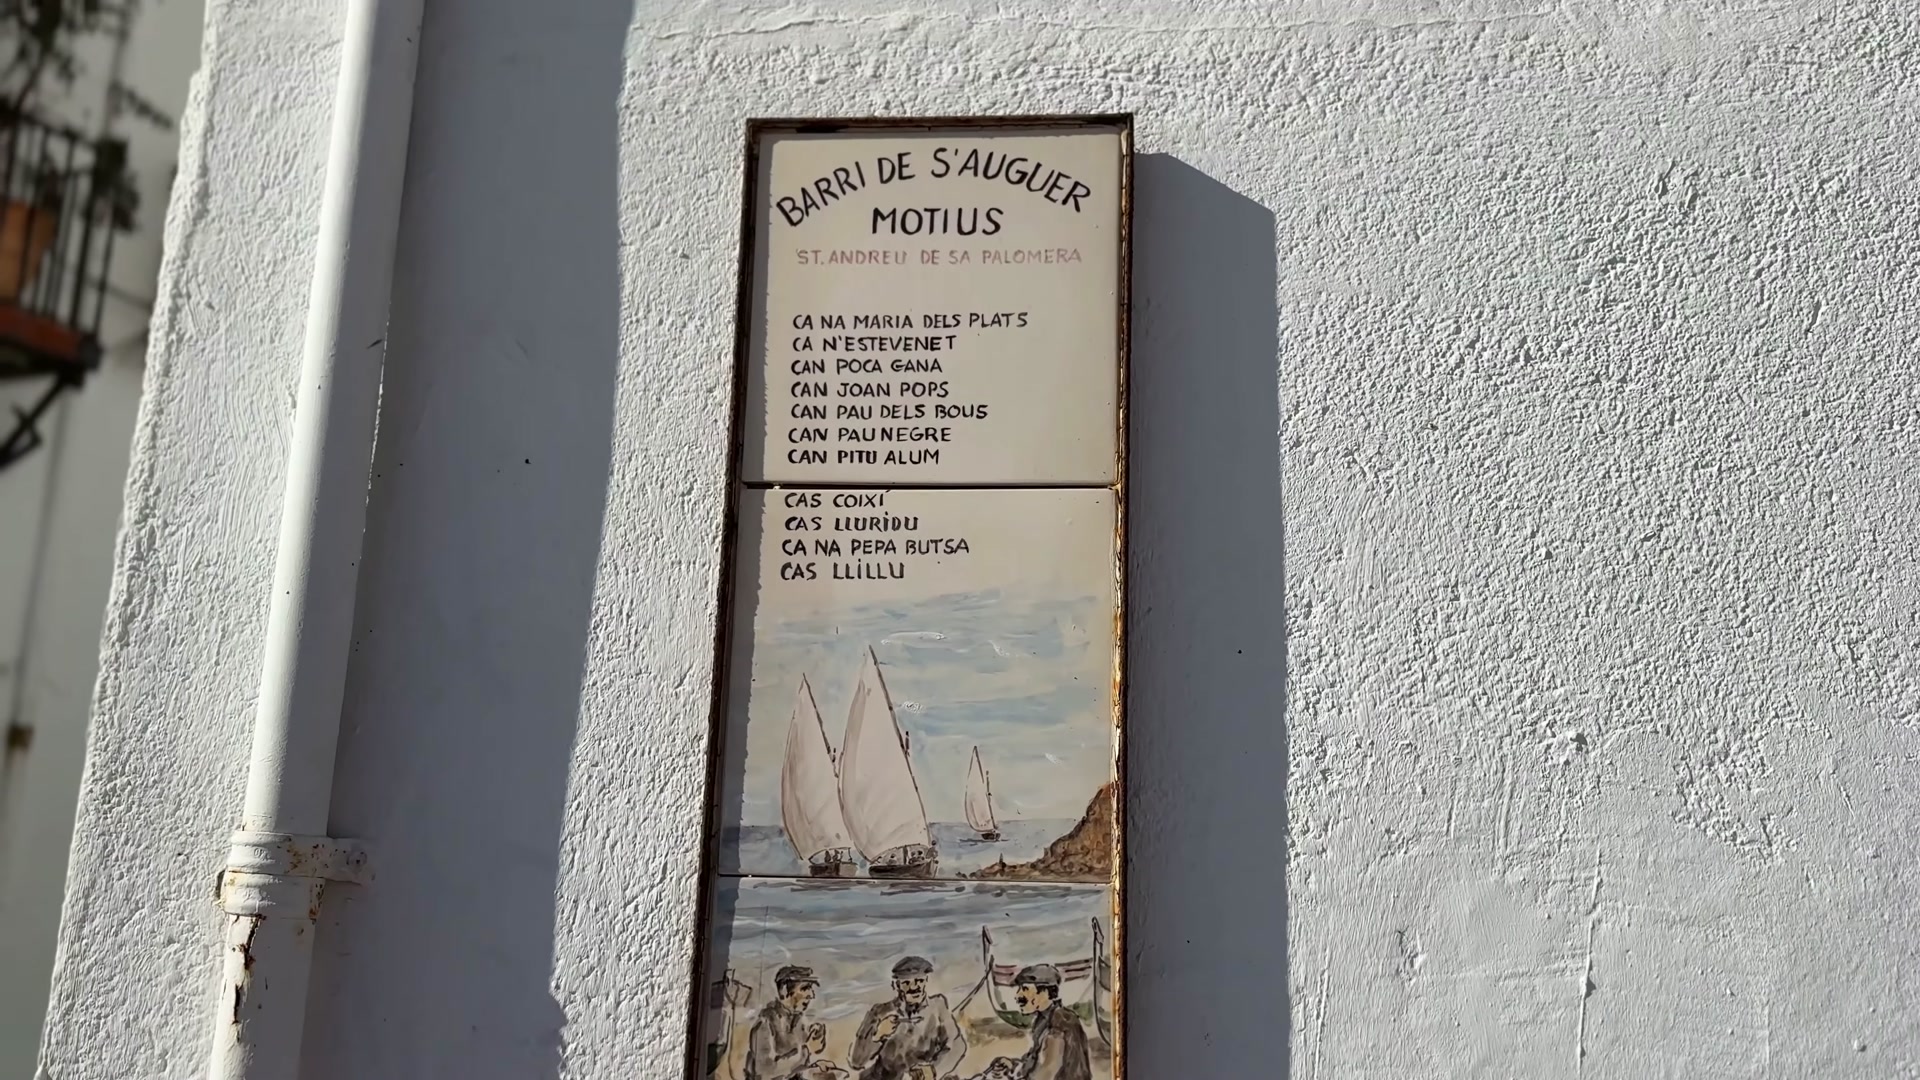 BARRI DE S'AUGUER
MOTIUS
ST. ANDREU DE SA PALOMERA
CA NA MARIA DELS PLATS
CA N'ESTEVENET
CAN POCA GANA
CAN JOAN POPS
CAN PAU DELS BOUS
CAN PAU NEGRE
CAN PITU ALUM
CAS COIXÍ
CAS LLURÍDU
CA NA PEPA BUTSA
CAS LLÍLLU